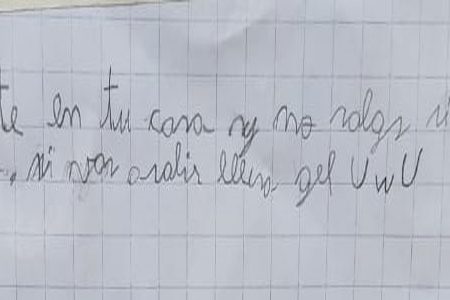 te en tu casa y no salgas si
, si vas a salir lleva gel UwU